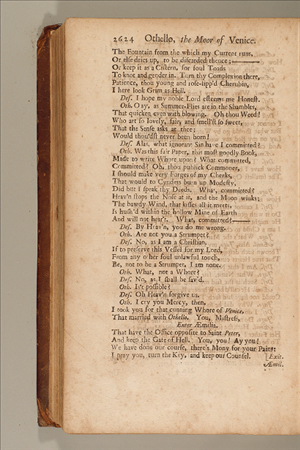 2624 Othello, the Moor of Venice.
The Fountain from the which my Current runs,
Or else dries up, to be discarded thence;
Or keep it as a Cistern, for foul Toads
To knot and gender in. Turn thy Complexion there,
Patience, thou young and rose-lipp'd Cherubin,
I here look Grim as Hell.
Des. I hope my noble Lord esteems me Honest.
Oth. O ay, as Summer-Flies are in the Shambles,
That quicken even with blowing. Oh thou Weed!
Who art so lovely, fair, and smell'st so sweet,
That the Sense akes at thee;
Would thou'dst never been born!
Des. Alas, what ignorant Sin have I committed?
Oth. Was this fair Paper, this most goodly Book,
Made to write Whore upon? What committed,
Committed? Oh, thou publick Commoner,
I should make very Forges of my Cheeks,
That would to Cynders burn up Modesty,
Did but I speak thy Deeds. What, committed?
Heav'n stops the Nose at it, and the Moon winks;
The bawdy Wind, that kisses all it meets,
Is hush'd within the hollow Mine of Earth
And will not hear't. What, committed?
Des. By Heav'n, you do me wrong.
Oth. Are not you a Strumpet?
Des. No, as I am a Christian.
If to preserve this Vessel for my Lord,
From any other foul unlawful touch,
Be, not to be a Strumpet, I am none.
Oth. What, not a Whore?
Des. No, as I shall be sav'd.
Oth. Is't possible?
Des. Oh Heav'n forgive us.
Oth. I cry you Mercy, then.
I took you for that cunning Whore of Venice,
That married with Othello. You, Mistress,
Enter Æmilia.
That have the Office opposite to Saint Peter,
And keep the Gate of Hell. You, you! Ay you!
We have done our course, there's Mony for your Pains;
I pray you, turn the Key, and keep our Counsel. [Exit.
Æmil.